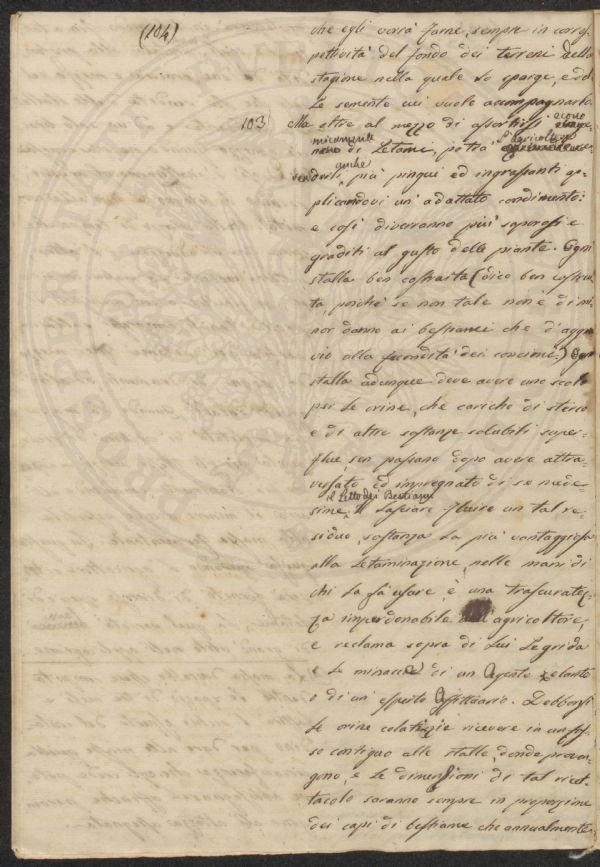 (104)
che egli vorrà farne, sempre in corres-
pettività del fondo dei terreni della
stagione nella quale lo sparge, e del
le semente cui vuole accompagnarlo.
103 Ma oltre al mezzo di econo
micamente di Letami, potrà l'agricoltore
renderli anche più pingui ed ingrassanti ap-
plicandovi un' adattato condimento:
e così diverranno più saporosi e
graditi al gusto delle piante. Ogni
stalla ben costruita (dico ben costrui
ta, perchè se non tale non è di mi
nor danno ai bestiami che d'aggra
vio alla fecondità dei concimi.) Ogni
stalla adunque deve avere uno scolo
per le orine, che cariche di sterco
e di altre sostanze solubili super-
flue, sen passano dopo avere attra-
versato ed impregnato di se mede-
sime il Letto dei Bestiami. Lasciare fluire un tal re-
siduo, sostanza la più vantaggiosa
alla Letaminazione, nelle mani di
chi la fà usare, è una trascuratez
za imperdonabile all'agricoltore,
e reclama sopra di Lui le grida
e le minacce di un Agente zelante
o di un' esperto Affittuario. Debbonsi
le orine colatizie ricevere in un fos
so contiguo alle stalle, donde proven-
gono, e le dimensioni di tal ricet-
tacolo saranno sempre in proporzione
dei capi di bestiame che annualmente